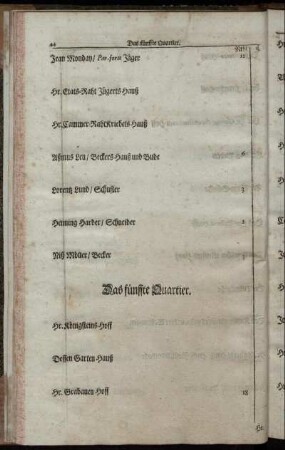 44 Das fünffte Quartier.
Rthl. ß.
Jean Monday / Par-force Jäger
Hr. Etats-Raht Jägerts Hauß
Hr. Cammer-Raht Kriebels Hauß
Asmus Leu / Beckers Hauß und Bude 6
Lorentz Lund / Schuster 3
Henning Harder / Schneider 2
Niß Möller / Becker
Das fünffte Quartier.
Hr. Königsteins-Hoff
Dessen Garten-Hauß
Hr. Grabauen-Hoff 12
Hr.